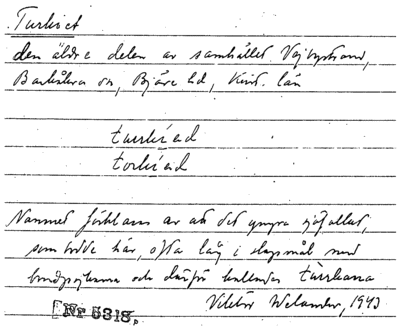 Turkiet
den äldre delen av samhället Vejbystrand,
Barkåkra sn, Bjäre hd, Krist. län
turkiəd
torkiəd
Namnet förklaras av att det yngre sjöfolket,
som bodde här, ofta låg i slagsmål med
och därför kallades turkarna
Viktor Welander, 1943
Nr 5318.